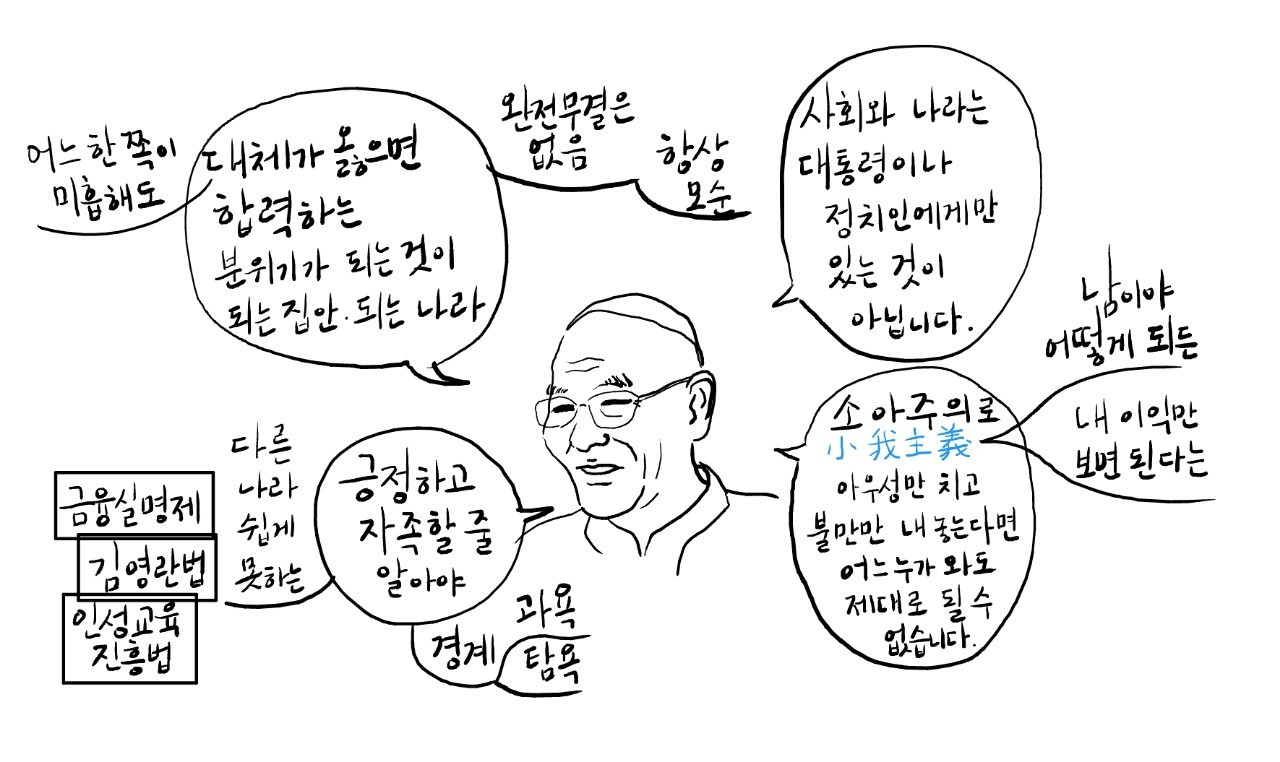 어느 한 쪽이
미흡해도
대체가 옳으면
합력하는
분위기가 되는 것이
되는 집안·되는 나라
완전무결은
없음
항상
모순
사회와 나라는
대통령이나
정치인에게만
있는 것이
아닙니다.
소아주의로
小我主義
아우성만 치고
불만만 내놓는다면
어느 누가 와도
제대로 될 수
없습니다.
남이야
어떻게 되든
내 이익만
보면 된다는
긍정하고
자족할 줄
알아야
다른
나라
쉽게
못하는
금융실명제
김영란법
인성교육
진흥법
경계
과욕
탐욕